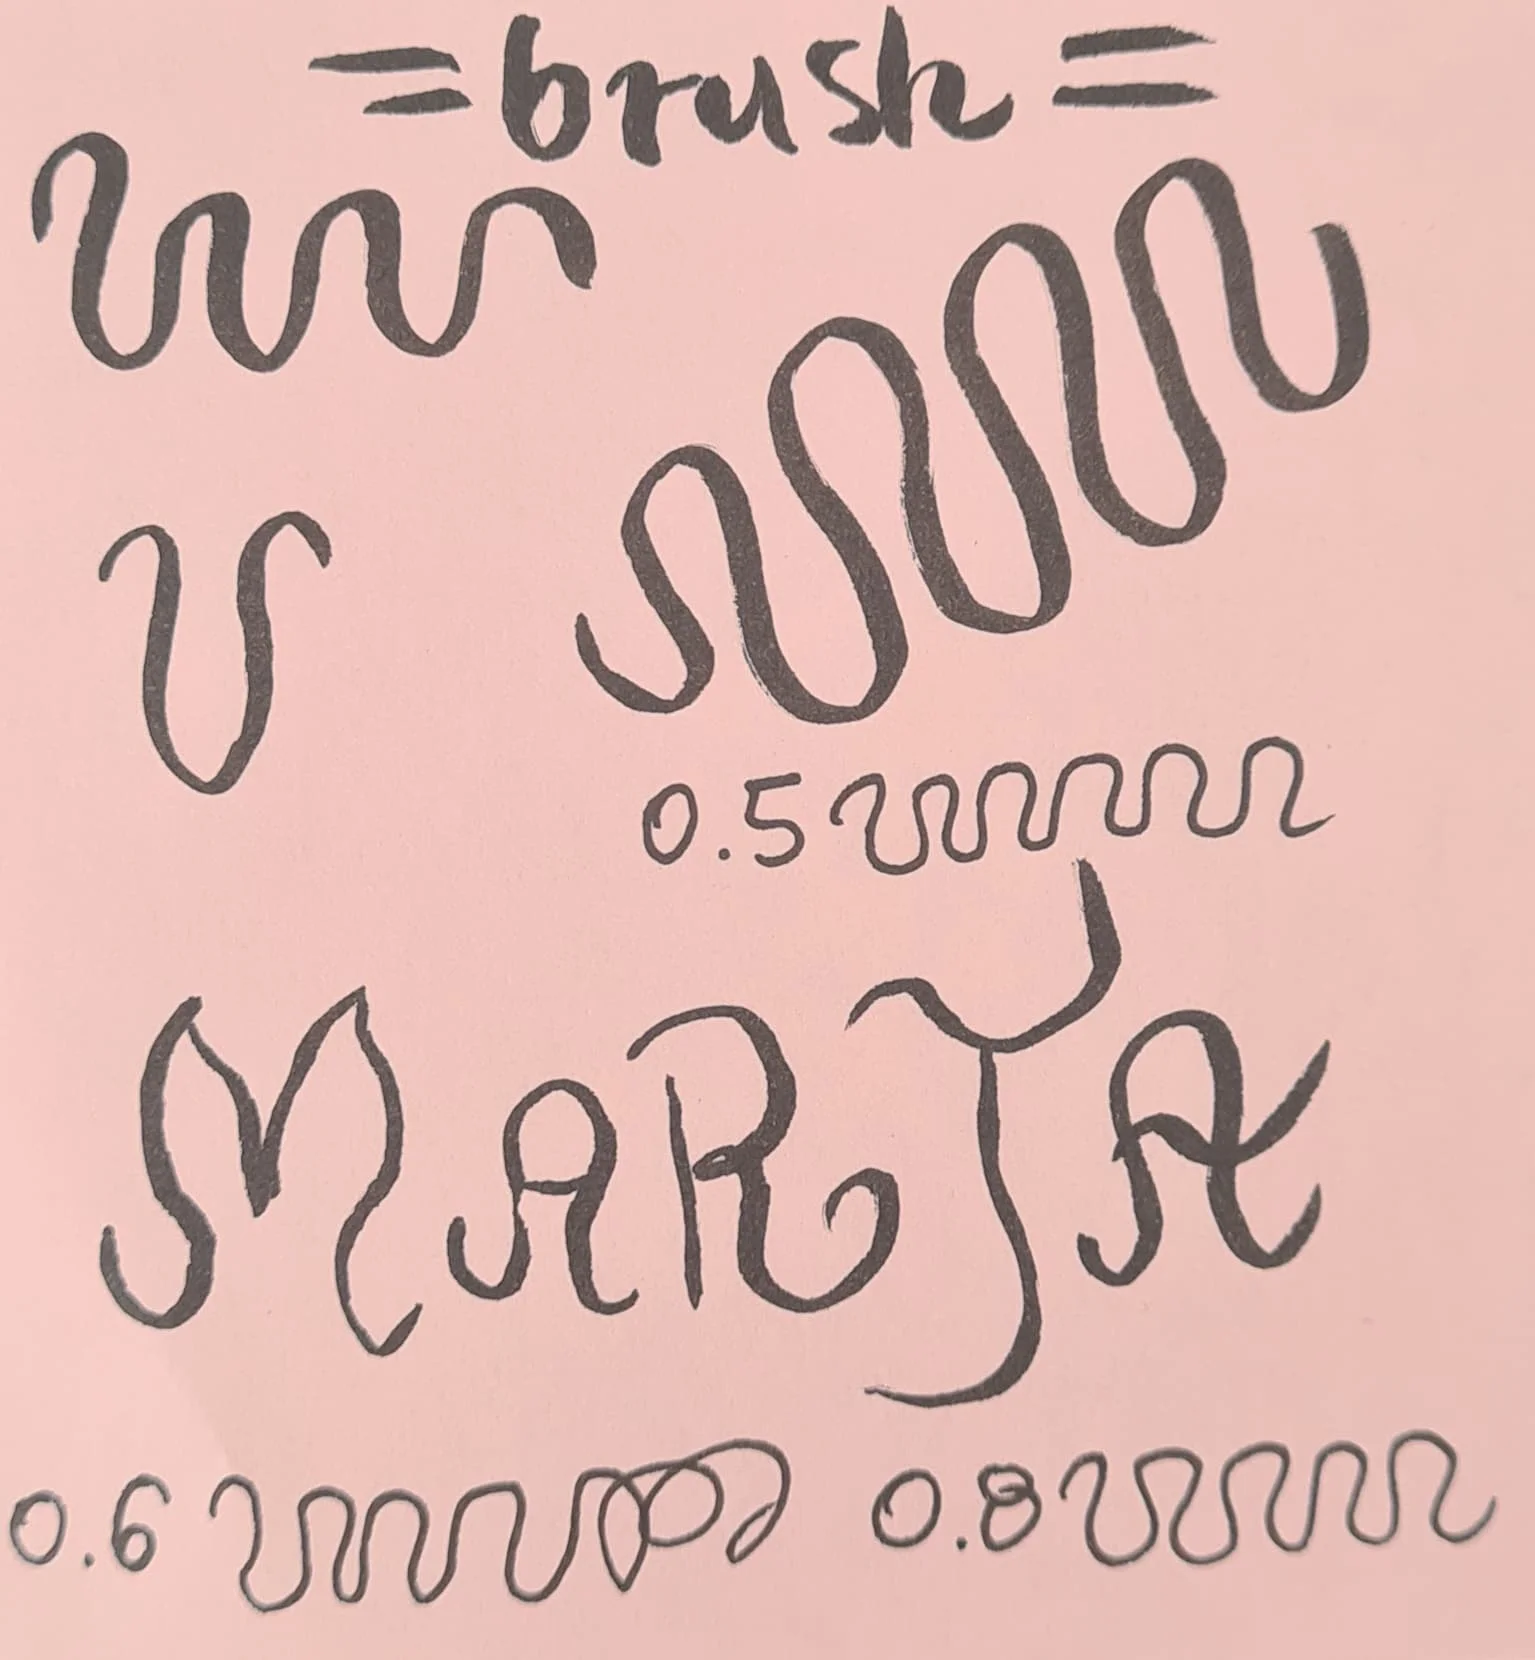 = brush =
0.5
MARTA
0.6 0.8